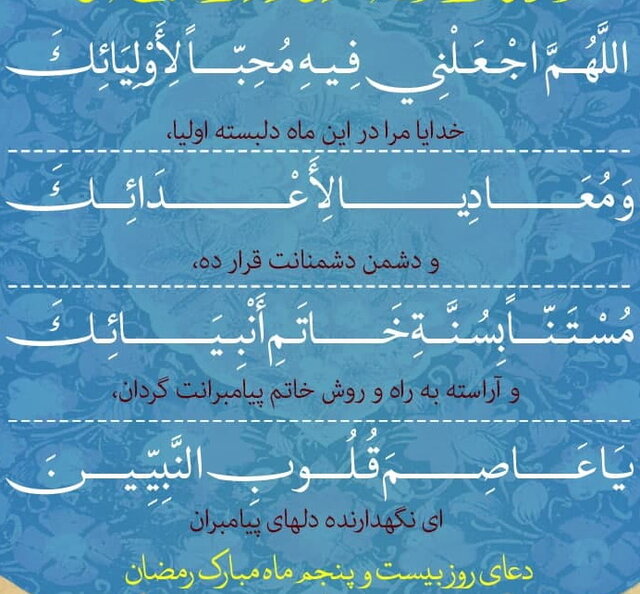 اللَّهُمَّ اجْعَلْنِي فِيهِ مُحِبّاً لِأَوْلِيَائِكَ
خدایا مرا در این ماه دلبسته اولیا،
وَ مُعَادِيا لِأَعْدَائِكَ
و دشمن دشمنانت قرار ده،
مُسْتَنّاً بِسُنَّةِ خَاتَمِ أَنْبِيَائِكَ
و آراسته به راه و روش خاتم پیامبرانت گردان،
يَا عَاصِمَ قُلُوبِ النَّبِيِّينَ
ای نگهدارنده دلهای پیامبران
دعای روز بیست و پنجم ماه مبارک رمضان